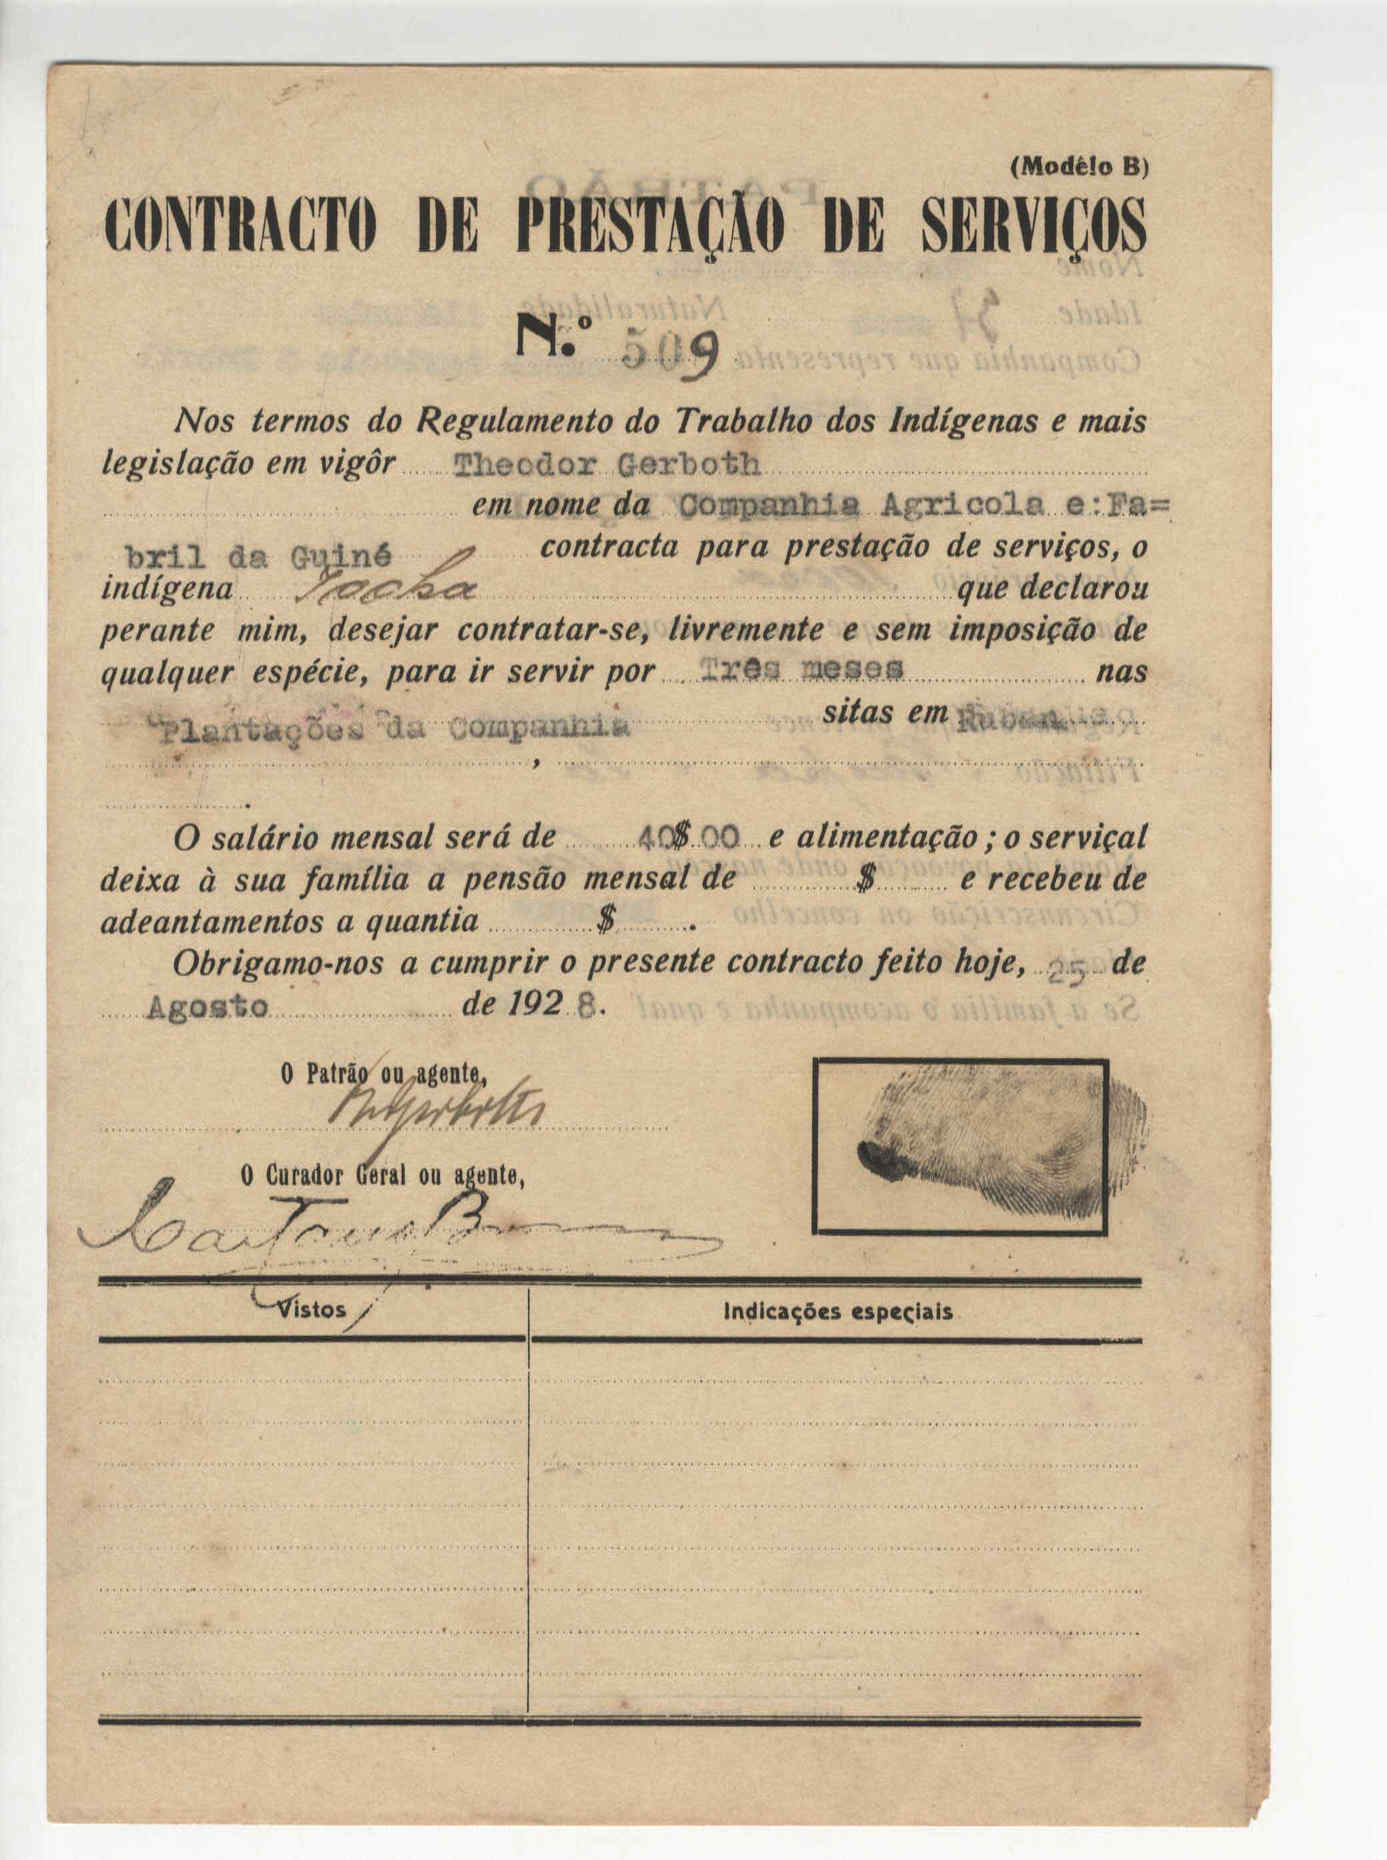 (Modêlo B)
CONTRACTO DE PRESTAÇÃO DE SERVIÇOS
N.º 509
Nos termos do Regulamento do Trabalho dos Indígenas e mais
legislação em vigôr Theodor Gerboth
em nome da Companhia Agricola e:Fa=
bril da Guiné contracta para prestação de serviços, o
indígena que declarou
perante mim, desejar contratar-se, livremente e sem imposição de
qualquer espécie, para ir servir por Três meses nas
Plantações da Companhia sitas em Ruban
,
.
O salário mensal será de 40$00 e alimentação ; o serviçal
deixa à sua família a pensão mensal de $ e recebeu de
adeantamentos a quantia $ .
Obrigamo-nos a cumprir o presente contracto feito hoje, 25 de
Agosto de 1928.
O Patrão ou agente,
O Curador Geral ou agente,
Vistos Indicações especiais